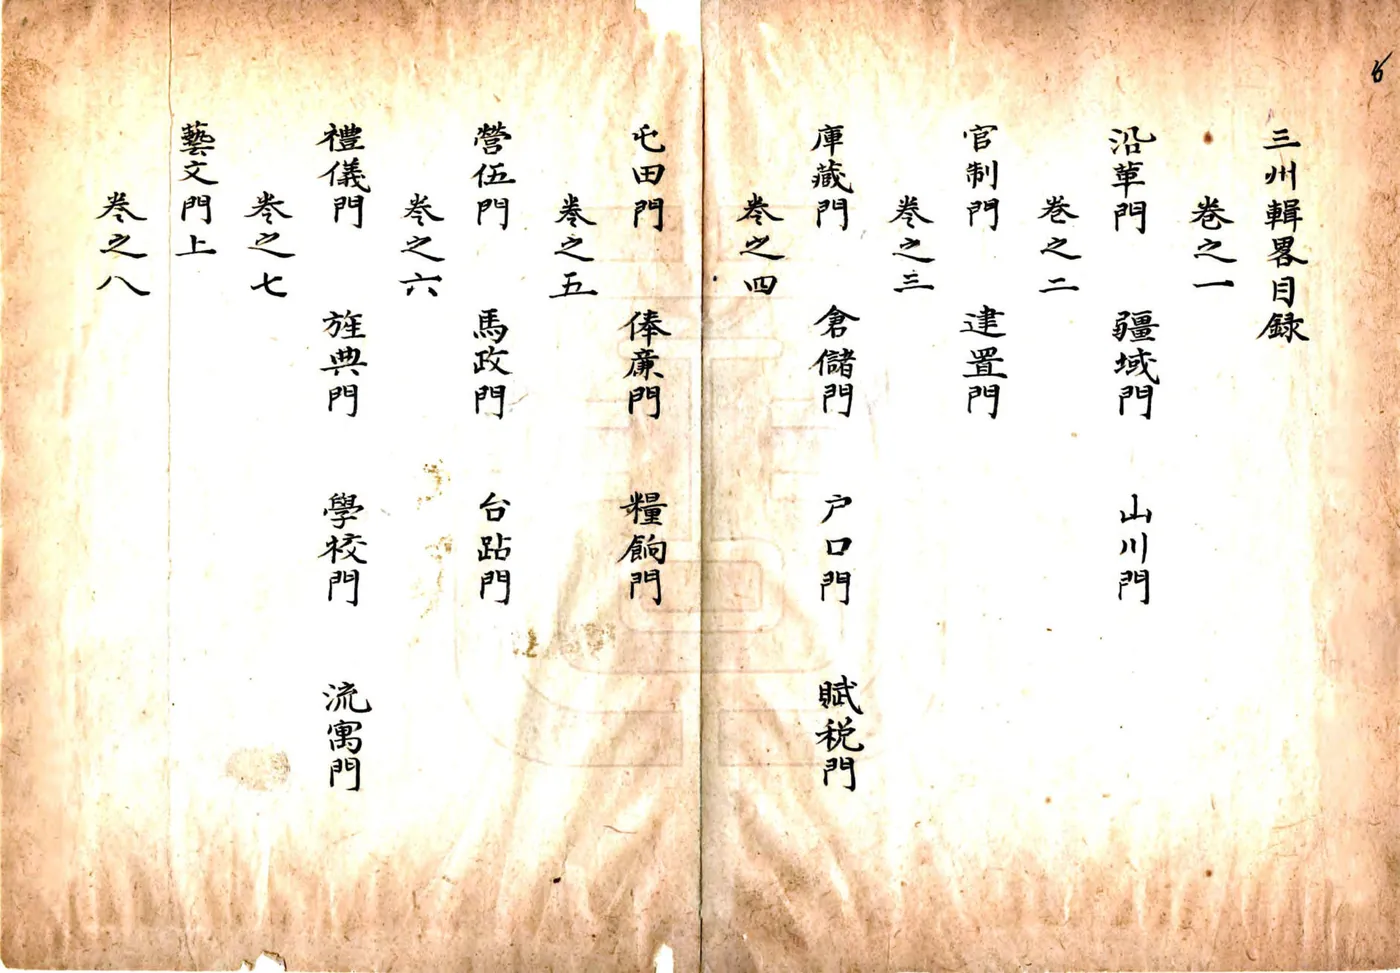 三州輯畧目録
卷之一
沿革門 疆域門 山川門
卷之二
官制門 建置門
卷之三
庫藏門 倉儲門 户口門 賦税門
卷之四
屯田門 俸廉門 糧餉門
卷之五
營伍門 馬政門 台跕門
卷之六
禮儀門 旌典門 學校門 流寓門
卷之七
藝文門上
卷之八
6